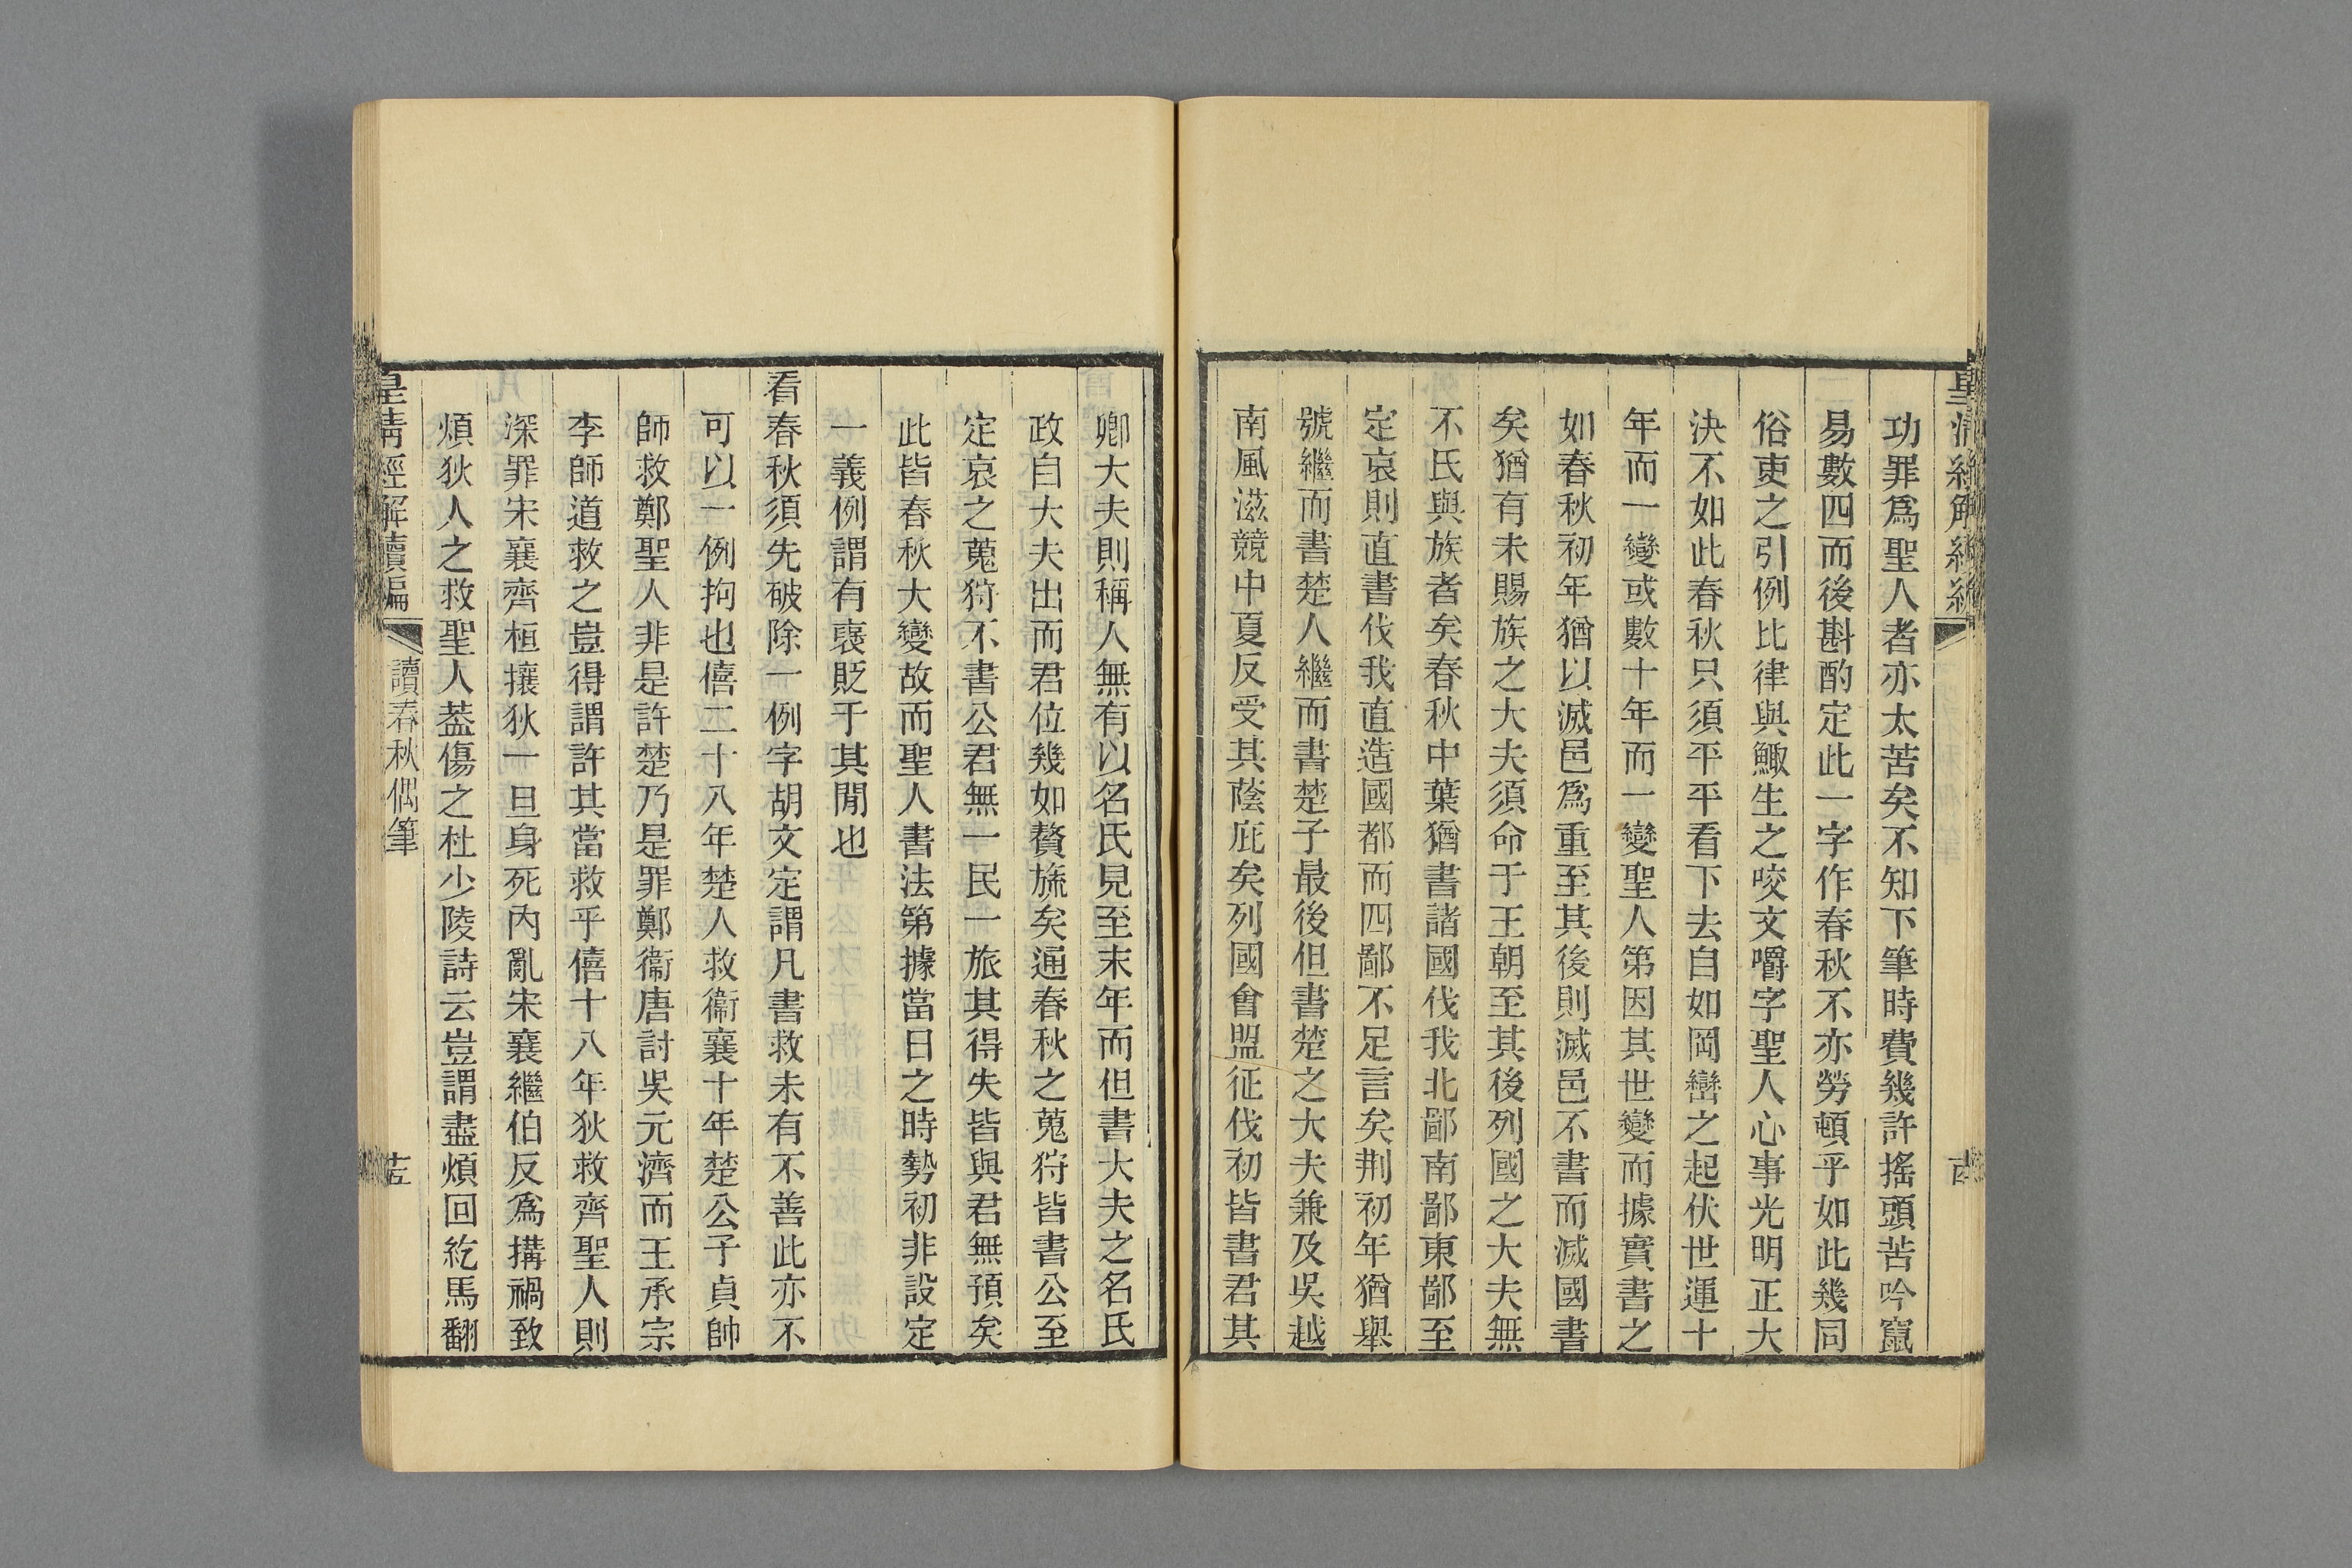 功罪爲聖人者亦太苦矣不知下筆時費幾許搖頭苦吟竄
易數四而後斟酌定此一字作春秋不亦勞頓乎如此幾同
俗吏之引例比律與鯫生之咬文嚼字聖人心事光明正大
決不如此春秋只須平平看下去自如岡巒之起伏世運十
年而一變或數十年而一變聖人第因其世變而據實書之
如春秋初年猶以滅邑爲重至其後則滅邑不書而滅國書
矣猶有未賜族之大夫須命于王朝至其後列國之大夫無
不氏與族者矣春秋中葉猶書諸國伐我北鄙南鄙東鄙至
定哀則直書伐我直造國都而四鄙不足言矣荆初年猶舉
號繼而書楚人繼而書楚子最後但書楚之大夫兼及吳越
南風滋競中夏反受其蔭庇矣列國會盟征伐初皆書君其
卿大夫則稱人無有以名氏見至末年而但書大夫之名氏
政自大夫出而君位幾如贅旒矣通春秋之蒐狩皆書公至
定哀之蒐狩不書公君無一民一旅其得失皆與君無預矣
此皆春秋大變故而聖人書法第據當日之時勢初非設定
一義例謂有襃貶于其閒也
看春秋須先破除一例字胡文定謂凡書救未有不善此亦不
可以一例拘也僖二十八年楚人救衞襄十年楚公子貞帥
師救鄭聖人非是許楚乃是罪鄭衞唐討吳元濟而王承宗
李師道救之豈得謂許其當救乎僖十八年狄救齊聖人則
深罪宋襄齊桓攘狄一旦身死內亂宋襄繼伯反爲搆禍致
煩狄人之救聖人葢傷之杜少陵詩云豈謂盡煩回紇馬翻
皇清經解續編
讀春秋偶筆